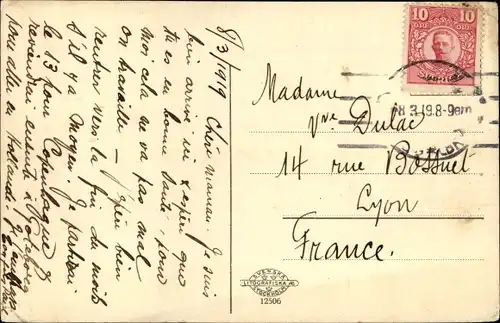 8/3/1919 Chère maman. Je suis
bien arrivé ici. J'espère que
tu es en bonne santé, pour
moi cela ne va pas mal
on travaille — J'espère bien
rentrer vers la fin du mois
S'il y a moyen je partirai
le 13 pour Copenhague &
reviendrai ensuite à Goteborg
pour aller en Hollande.
10 10
ÖRE ÖRE
8.3.19.8-9em
Madame
Vve Dulac
14 rue Bossuet
Lyon
France.
SVENSKA
LITOGRAFISKA AB
STOCKHOLM
12506